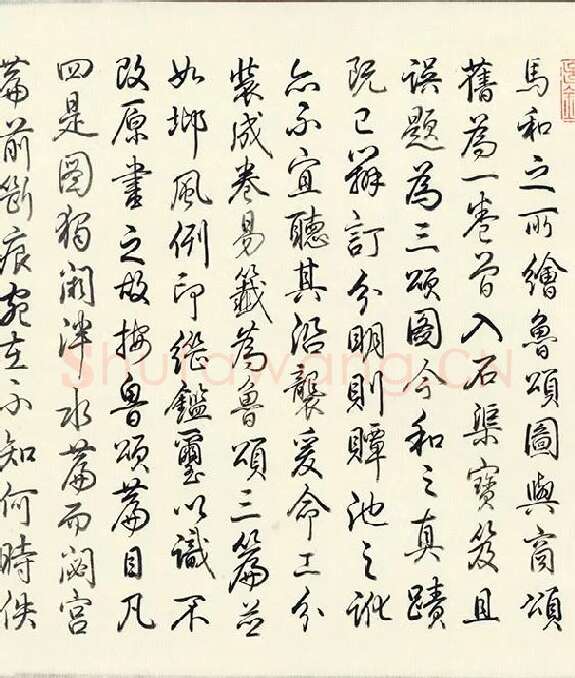 馬和之所繪魯頌圖與商頌
舊為一卷曾入石渠寶笈且
誤題為三頌圖今和之真蹟
既已辯訂分明則贉池之訛
亦不宜聽其沿襲爰命工分
裝成卷易籤為魯頌三篇並
如鄁風例印繼鑑璽以識不
改原書之故按魯頌篇目凡
四是圖獨闕泮水篇而閟宮
篇前斷痕宛在不知何時佚
Shufawang.CN